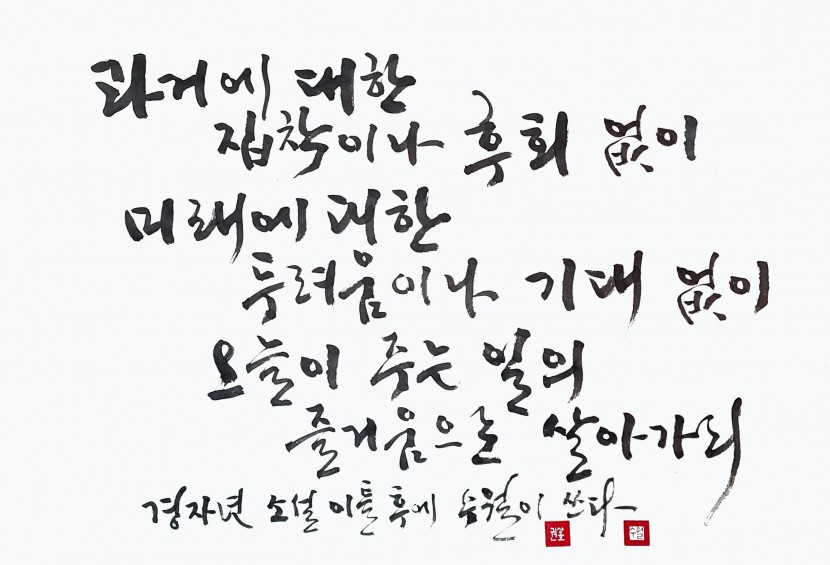 과거에 대한
집착이나 후회 없이
미래에 대한
두려움이나 기대 없이
오늘이 주는 일의
즐거움으로 살아가리
경자년 소설 이틀 후에 쓰다